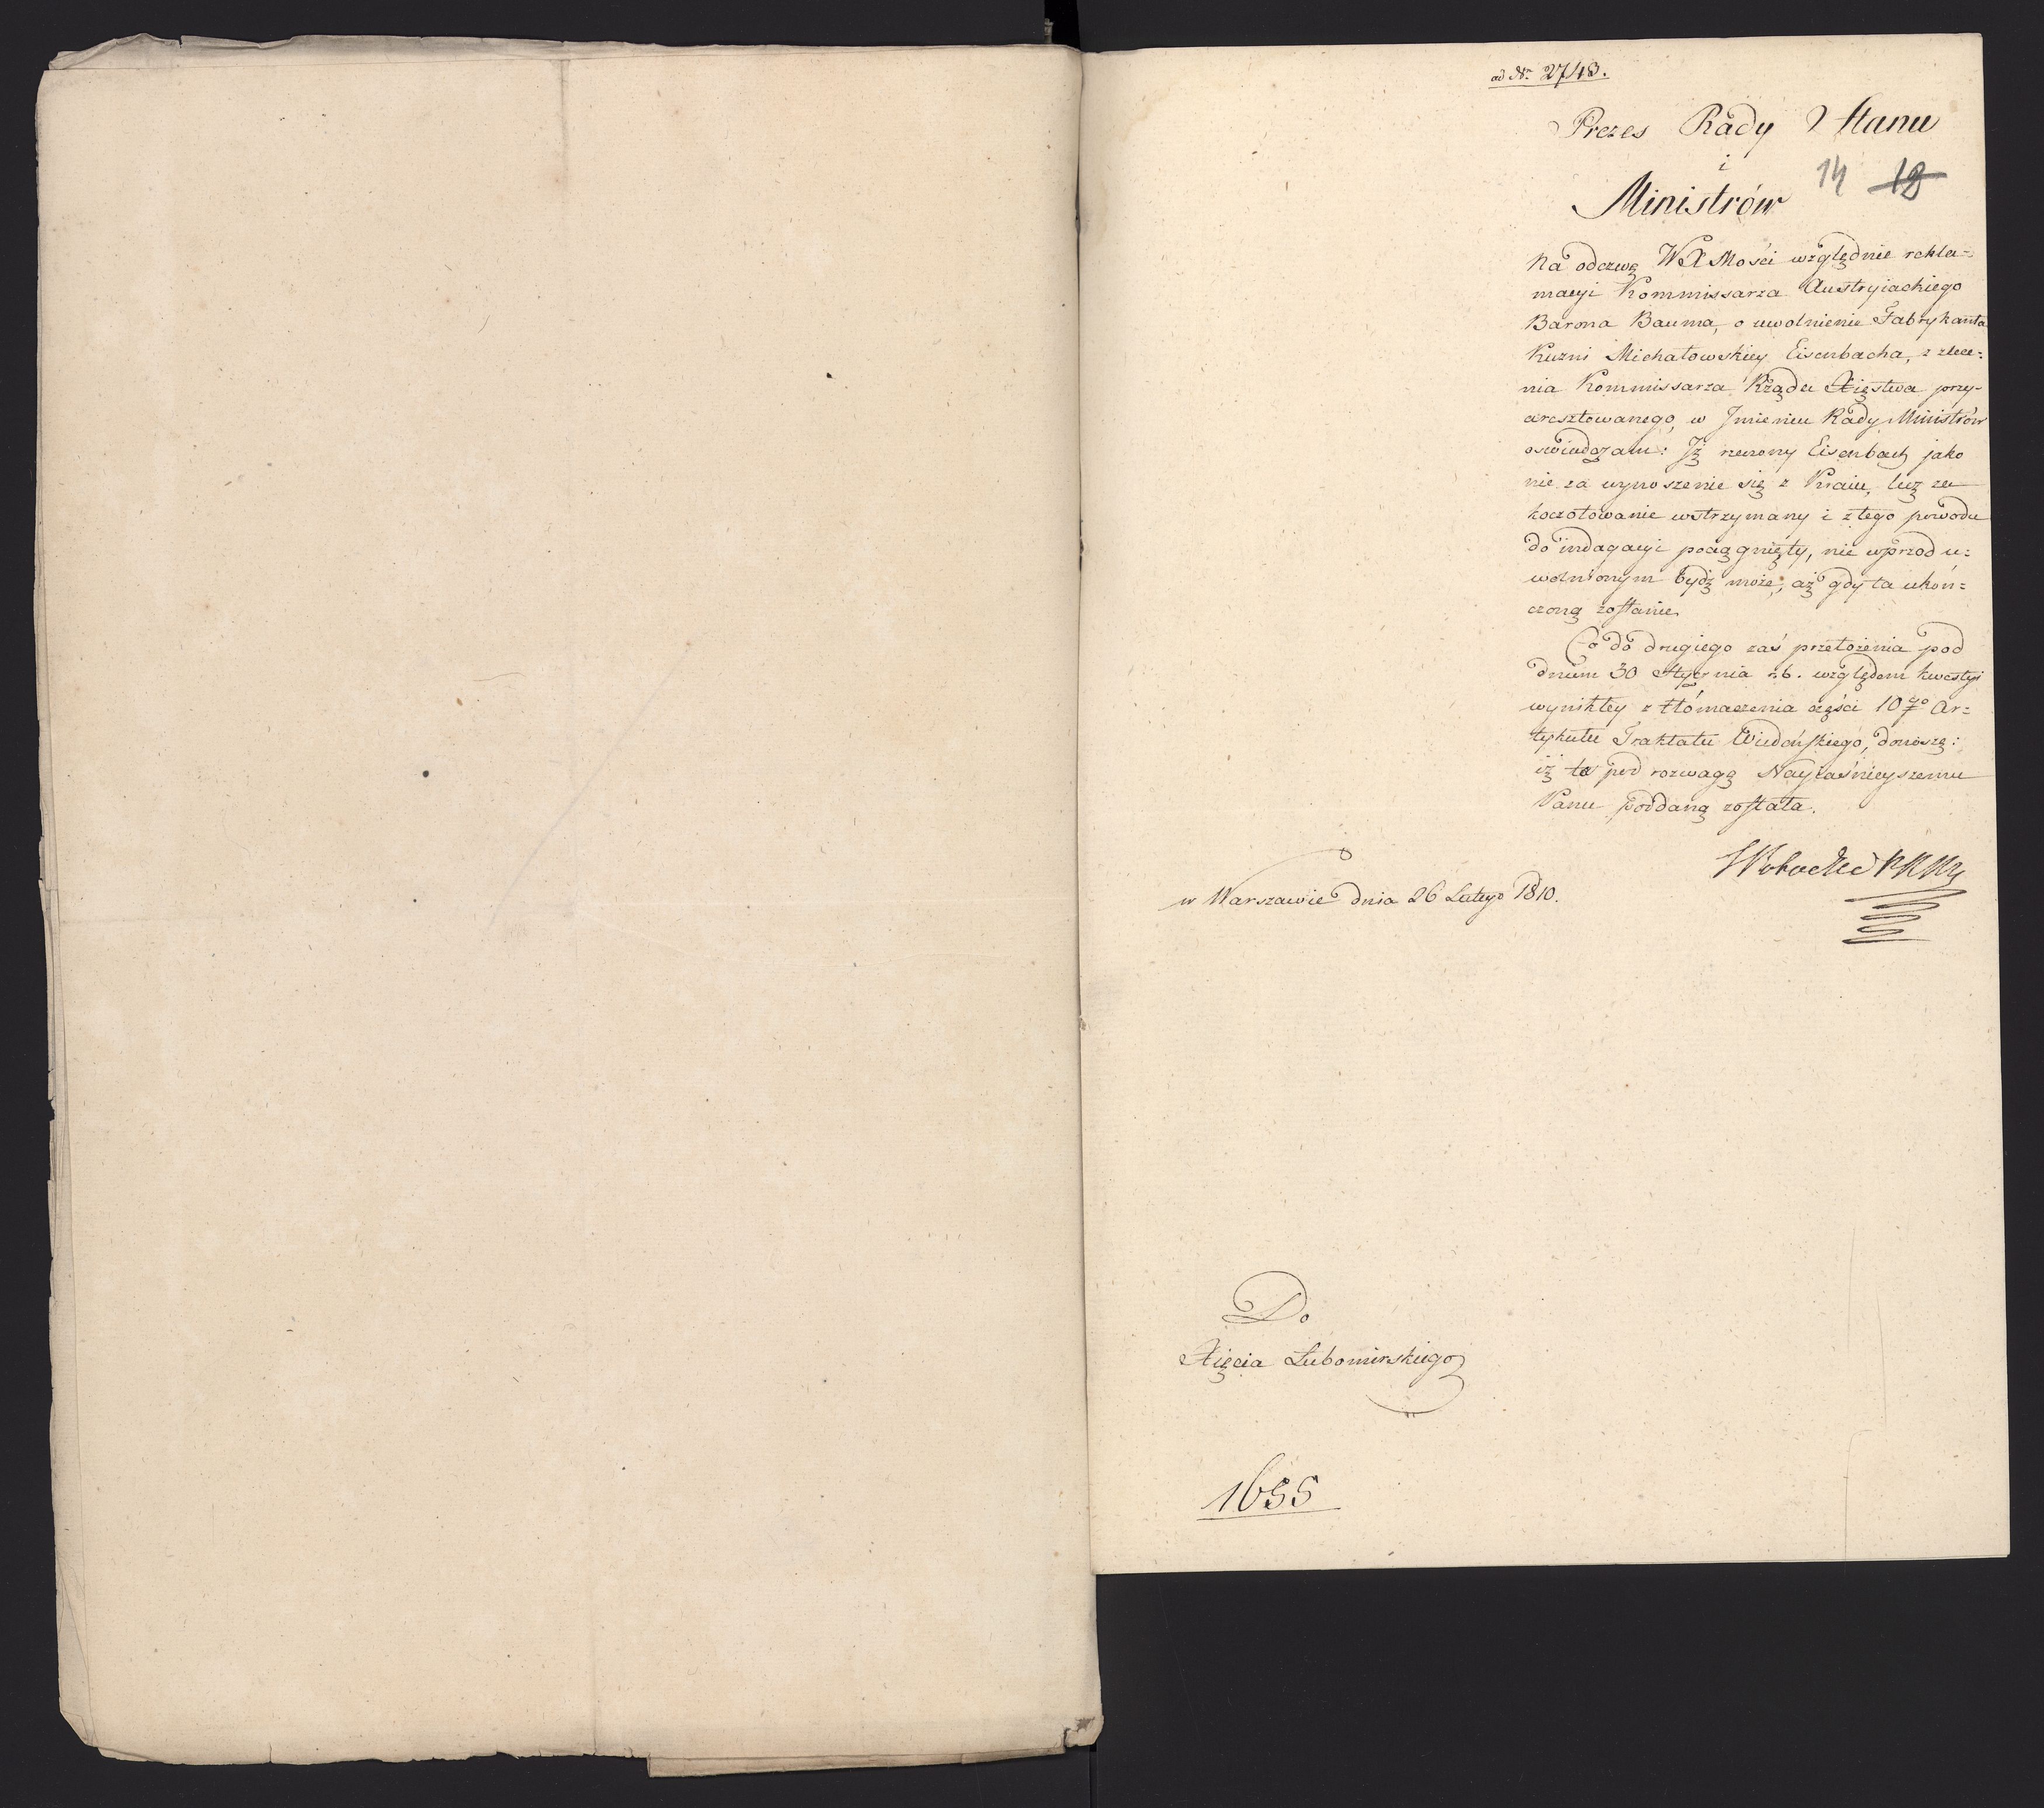 ad Nr 2748.
Prezes Rady Stanu
i
14 18
Ministrów
Na odezwę WXMości względnie rekla=
macyi Kommissarza Austryiackiego
Barona Bauma, o uwolnienie Fabrykanta
Kuzni Michałowskiey Eisenbacha, z zlece=
nia Kommissarza Rządu Xięstwa przy-
aresztowanego, w Jmieniu Rady Ministrów
oswiadczam: Jż rzeczony Eisenbach jako
nie za wynoszenie się z Kraiu, lecz za
koczotowanie wstrzymany i z tego powodu
do indagacyi pociągnięty, nie wprzod u=
wolnionym bydź może, aż gdy ta ukoń=
czoną zostanie.
Co do drugiego zaś przełożenia pod
dniem 30 Stycznia r. b. względem kwestyi
wynikłey z tłómaczenia części 10go Ar=
tykułu Traktatu Wiedeńskiego, donoszę:
iż ta pod rozwagę Nayiaśnieyszemu
Panu poddaną została.
w Warszawie dnia 26 Lutego 1810.
Do
Xięcia Lubomirskiego
1655